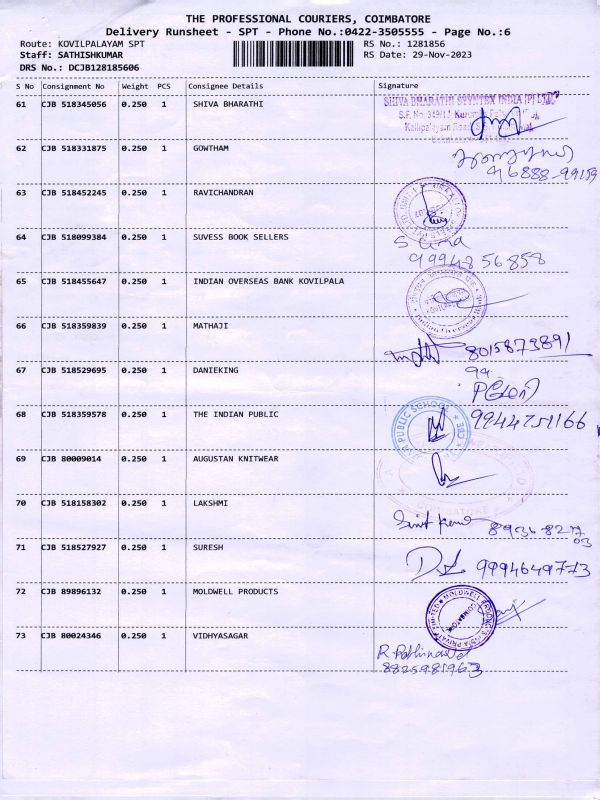 THE PROFESSIONAL COURIERS, COIMBATORE
Delivery Runsheet - SPT - Phone No.:0422-3505555 - Page No.:6
Route: KOVILPALAYAM SPT RS No.: 1281856
Staff: SATHISHKUMAR RS Date: 29-Nov-2023
DRS No.: DCJB128185606
S No Consignment No Weight PCS Consignee Details Signature
61 CJB 518345056 0.250 1 SHIVA BHARATHI
SHIVA BHARATHI INDIA (P) LTD.
62 CJB 518331875 0.250 1 GOWTHAM
96888-99159
63 CJB 518452245 0.250 1 RAVICHANDRAN
64 CJB 518099384 0.250 1 SUVESS BOOK SELLERS
9994856858
65 CJB 518455647 0.250 1 INDIAN OVERSEAS BANK KOVILPALA
66 CJB 518359839 0.250 1 MATHAJI
8015873891
67 CJB 518529695 0.250 1 DANIEKING
68 CJB 518359578 0.250 1 THE INDIAN PUBLIC
PUBLIC SCHOOL
9944251166
69 CJB 80009014 0.250 1 AUGUSTAN KNITWEAR
70 CJB 518158302 0.250 1 LAKSHMI
71 CJB 518527927 0.250 1 SURESH
9994649773
72 CJB 89896132 0.250 1 MOLDWELL PRODUCTS
MOLDWELL PRODUCTS INDIA PRIVATE LIMITED
73 CJB 80024346 0.250 1 VIDHYASAGAR
8825981963